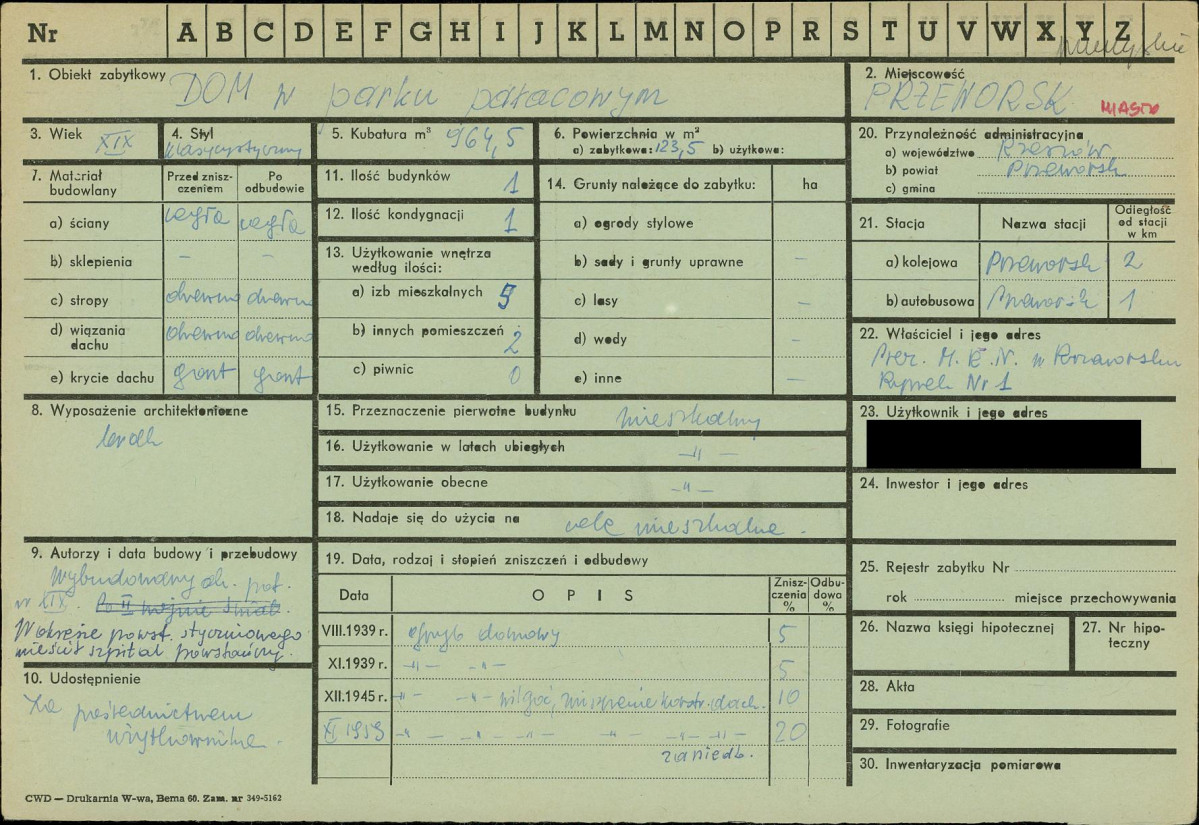 Nr A B C D E F G H I J K L M N O P R S T U V W X Y Z
1. Obiekt zabytkowy DOM w parku pałacowym
2. Miejscowość
PRZEWORSK MIASTO
3. Wiek XIX
4. Styl
klasycystyczny
5. Kubatura m³ 964,5
6. Powierzchnia w m²
a) zabytkowa: 123,5 b) użytkowa:
20. Przynależność administracyjna
a) województwo Rzeszów
b) powiat Przeworsk
c) gmina
7. Materiał budowlany
Przed zniszczeniem
Po odbudowie
a) ściany cegła cegła
b) sklepienia – –
c) stropy drewno drewno
d) wiązania dachu drewno drewno
e) krycie dachu gont gont
11. Ilość budynków 1
12. Ilość kondygnacji 1
13. Użytkowanie wnętrza
według ilości:
a) izb mieszkalnych 5
b) innych pomieszczeń 2
c) piwnic 0
14. Grunty należące do zabytku: ha
a) ogrody stylowe
b) sady i grunty uprawne –
c) lasy –
d) wody –
e) inne –
21. Stacja Nazwa stacji Odległość od stacji w km
a) kolejowa Przeworsk 2
b) autobusowa Przeworsk 1
22. Właściciel i jego adres
Prez. M. R. N. w Przeworsku
Rynek Nr 1
8. Wyposażenie architektoniczne
brak
15. Przeznaczenie pierwotne budynku mieszkalny
16. Użytkowanie w latach ubiegłych –"–
17. Użytkowanie obecne –"–
18. Nadaje się do użycia na cele mieszkalne.
23. Użytkownik i jego adres
24. Inwestor i jego adres
9. Autorzy i data budowy i przebudowy
Wybudowany ok. poł.
w XIX. Po II wojnie świat.
W okresie powst. styczniowego
mieścił szpital powstańczy.
10. Udostępnienie
Za pośrednictwem
użytkownika.
19. Data, rodzaj i stopień zniszczeń i odbudowy
Data OPIS Zniszczenia % Odbudowa %
VIII.1939 r. grzyb domowy 5
XI.1939 r. –"– –"– 5
XII.1945 r. –"– –"– wilgoć, zniszczenie konstr. dach. 10
XI 1959 –"– –"– –"– –"– –"– –"– 20
zaniedb.
25. Rejestr zabytku Nr
rok miejsce przechowywania
26. Nazwa księgi hipotecznej
27. Nr hipoteczny
28. Akta
29. Fotografie
30. Inwentaryzacja pomiarowa
CWD — Drukarnia W-wa, Bema 60. Zam. nr 349-5162